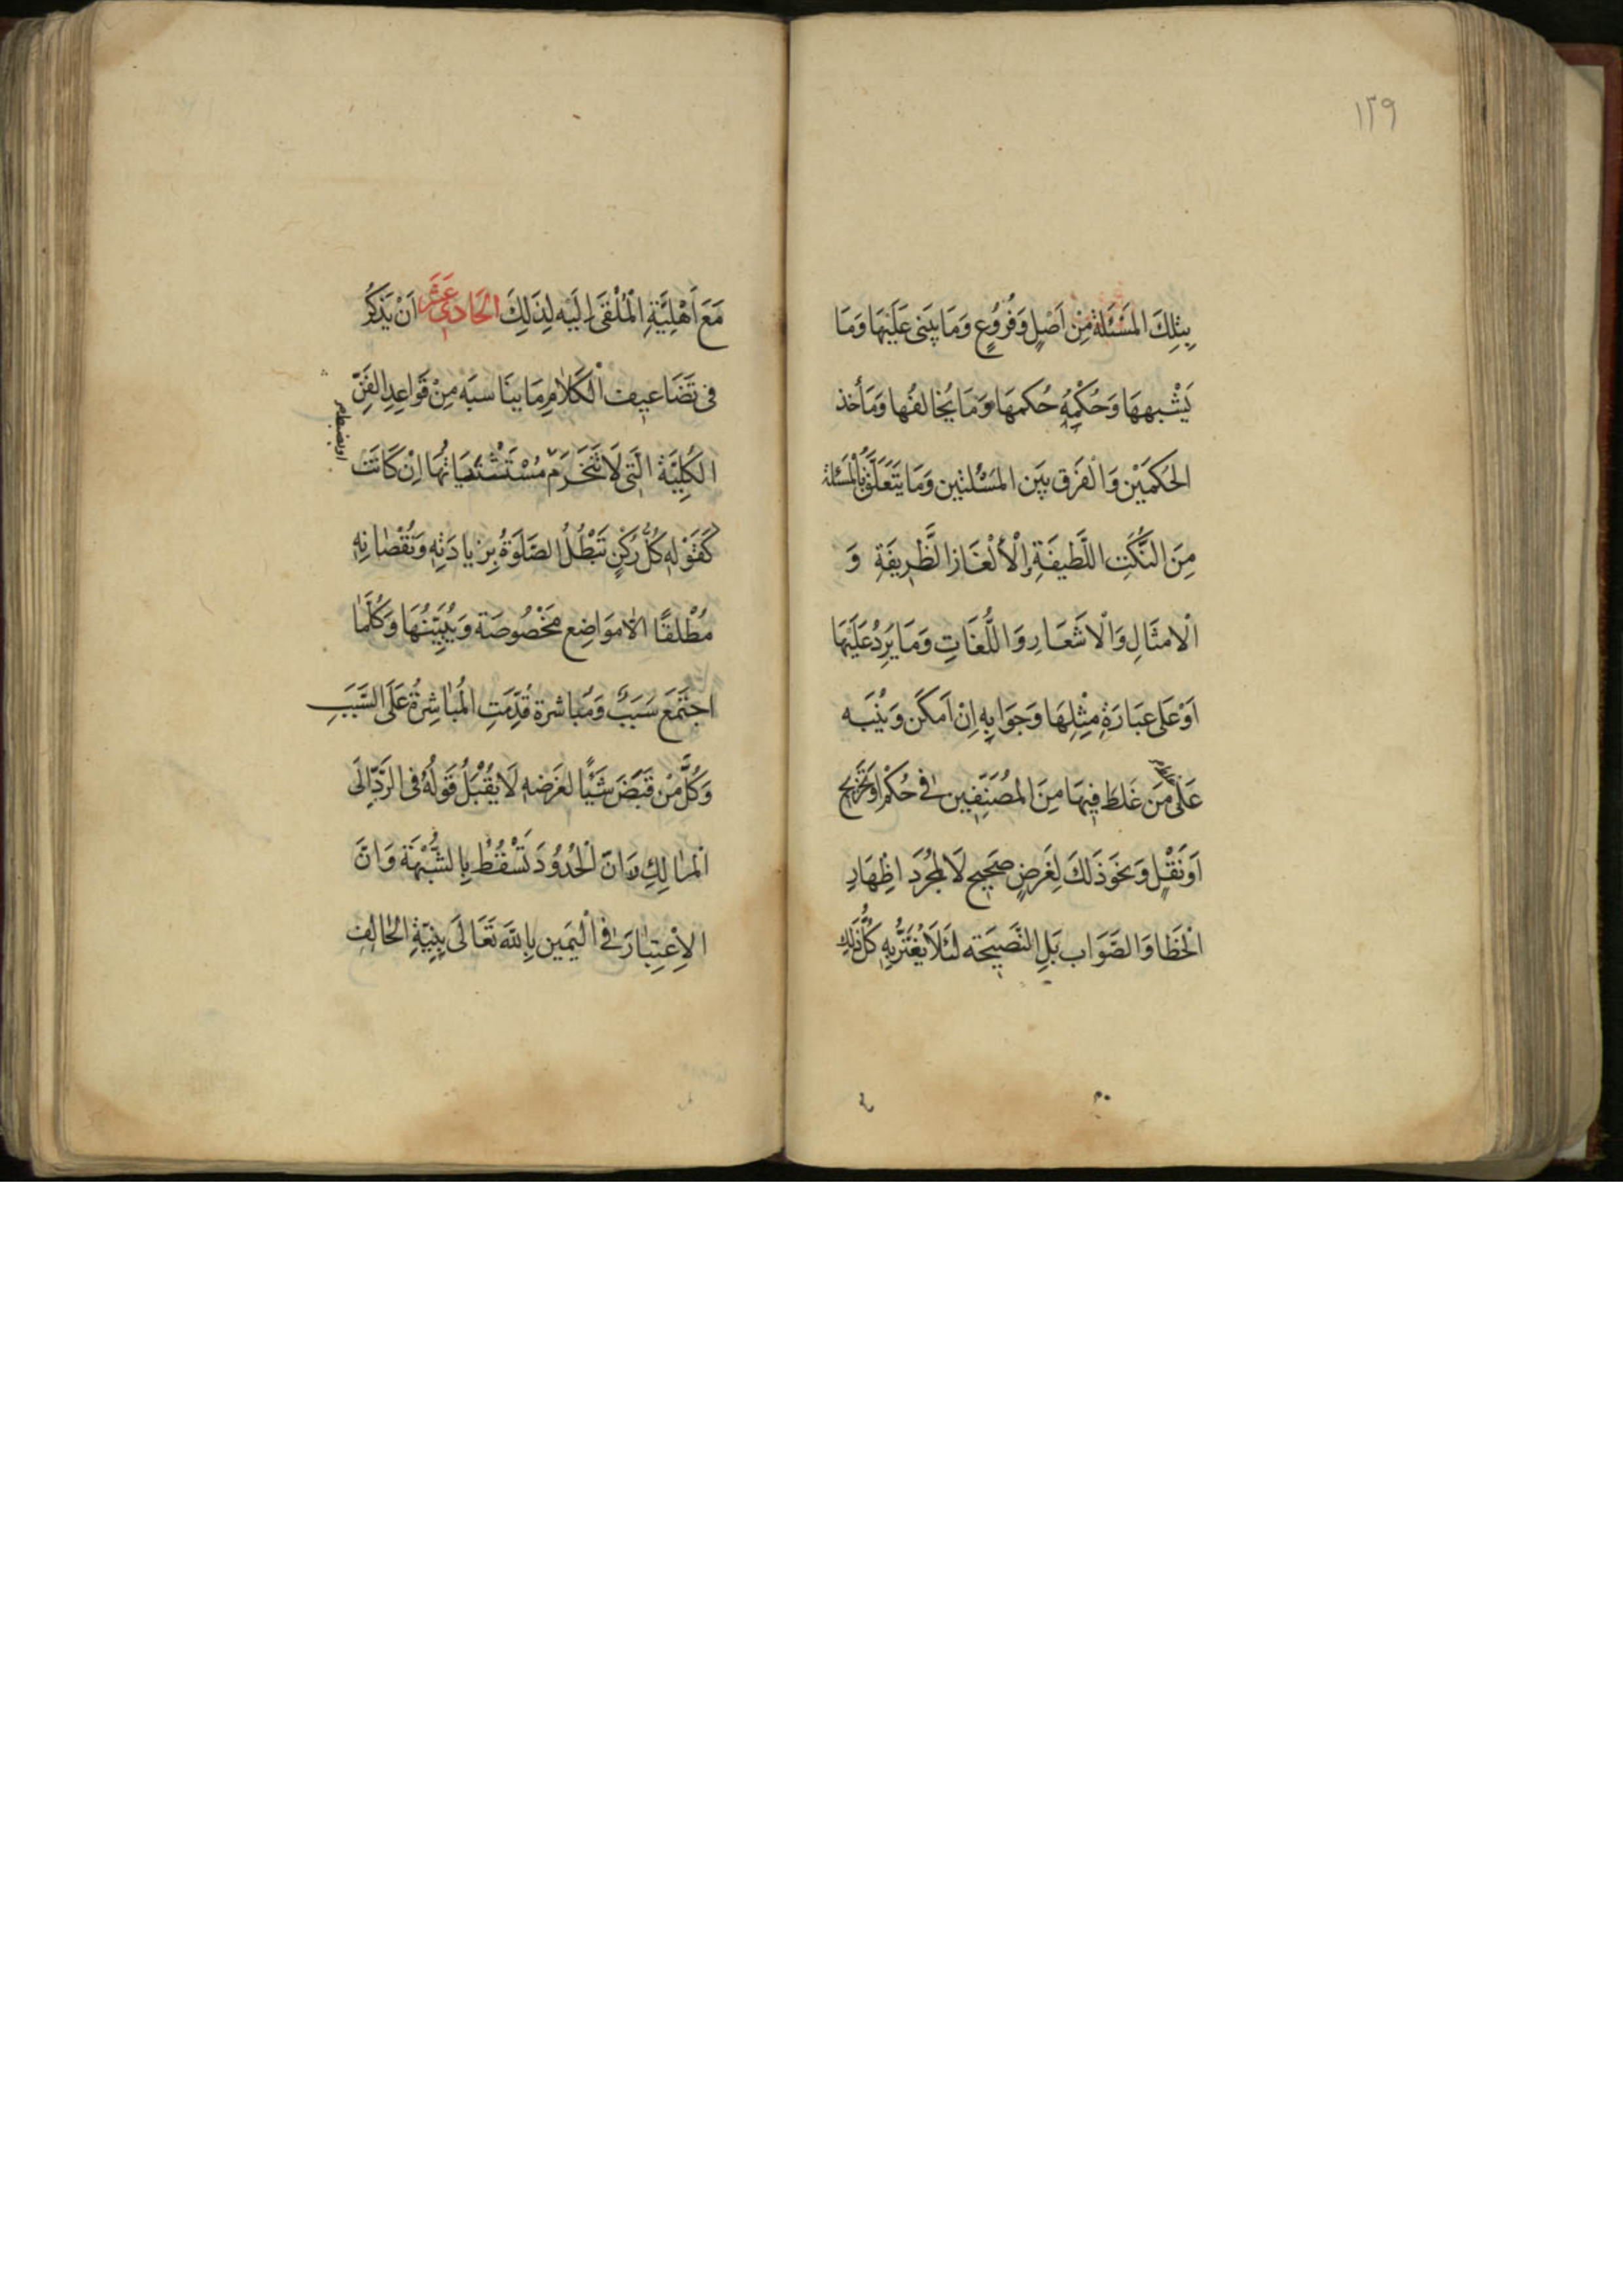 ١٢٩
بِتِلكَ المَسْئَلة مِنْ اَصْلٍ وَفُرُوُعٍ وَمَا يبَنى عَلَيْهَا وَمَا
يَشْبههَا وَحُكْمِهُ حُكمهَا وَمَا يُخالفُها وَمَأخذ
الحُكمَيْن وَالْفَرَق بيَن المَسْئلتين وَمَا يَتَعَلَّقُ بِالْمَسَئلة
مِنَ النَّكَتِ اللَّطيفَةِ وَالْأَلْغَازِ الظَّرِيفَةِ وَ
الْامثَالِ وَالْاشَعَارِ وَاللُّغَاتِ وَمَا يَرِدُ عَلَيْهَا
اَوْ عَلى عبَارَةِ مِثْلِهَا وَجَوَابِهِ اِنْ اَمكَن وَيُنْبَه
عَلَى مَن غَلطَ فِيهَا مِنَ المُصَنِّفِين فى حُكْمٍ اوَ تَخْرِيج
اَوَنَقْلٍ وَنحوَذَلكَ لِغَرضٍ صَحِيحٍ لَا لمُجُرَدَ اظْهَارِ
الْخَطَا وَالصَّوَاب بَلِ النَّصيحَته لئَلَا يُغْتَرُّ بِهِ كُلُّ ذَلِكِ
مَعَ اَهْلِيَّةِ الْمُلْقَى اِلَيْه لِذَلِكَ الحَادىَ عَشَر اَنْ يَذْكُرُ
فى تَضَاعيف الْكَلامِ مَا ينَاسبَه مِنْ قَوَاعِدِ الفَنِّ
الكُلِّيَّة الَّتى لَا تَنْخَرَم مُسْتَثْنَيَاتُهَا اِنْ كَانَتْ
كَقَوْلهِ كُلُّ رُكْنٍ تَبْطُلُ الصَّلَوَةُ بِزِيادَتِهِ وَنُقْصَانِهِ
مُطْلقًا الّا مَوَاضِع مَخْصُوصَة وَيُبِيَّنُهَا وَكُلَّمَا
اجتَمَع سَبَبٌ وَمُباشرة قُدِّمَتِ المُبَاشِرَةُ عَلَى السَّبَبِ
وَكُلُّ مَنْ قَبَضَ شَيْئًا لغَرَضهِ لَا يُقْبَلُ قَوْلُهُ فى الرَّدِّ اِلَى
الْمَالِكِ وَانَّ الْحُدُوُدَ تَسْقُطُ بِالشُّبْهَة وَانَّ
الاِعْتِبارَ فى الْيَمين بِاللهِ تَعَالَى بِنِيَّةِ الحَالِف